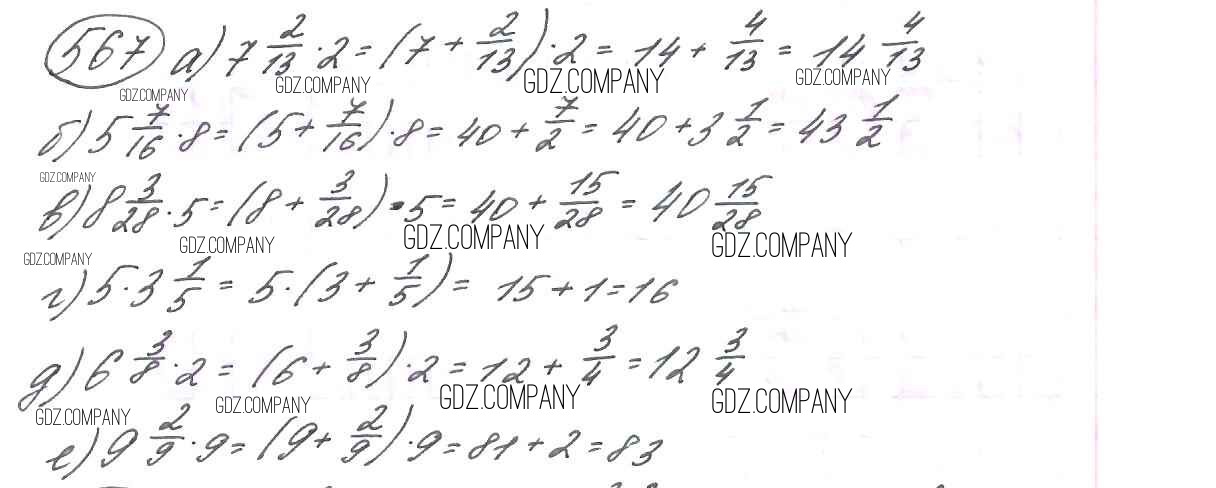 567 а) 7 2/13 · 2 = (7 + 2/13) · 2 = 14 + 4/13 = 14 4/13
GDZ.COMPANY GDZ.COMPANY GDZ.COMPANY GDZ.COMPANY
б) 5 7/16 · 8 = (5 + 7/16) · 8 = 40 + 7/2 = 40 + 3 1/2 = 43 1/2
GDZ.COMPANY
в) 8 3/28 · 5 = (8 + 3/28) · 5 = 40 + 15/28 = 40 15/28
GDZ.COMPANY GDZ.COMPANY GDZ.COMPANY GDZ.COMPANY
г) 5 · 3 1/5 = 5 · (3 + 1/5) = 15 + 1 = 16
д) 6 3/8 · 2 = (6 + 3/8) · 2 = 12 + 3/4 = 12 3/4
GDZ.COMPANY GDZ.COMPANY GDZ.COMPANY GDZ.COMPANY
е) 9 2/9 · 9 = (9 + 2/9) · 9 = 81 + 2 = 83